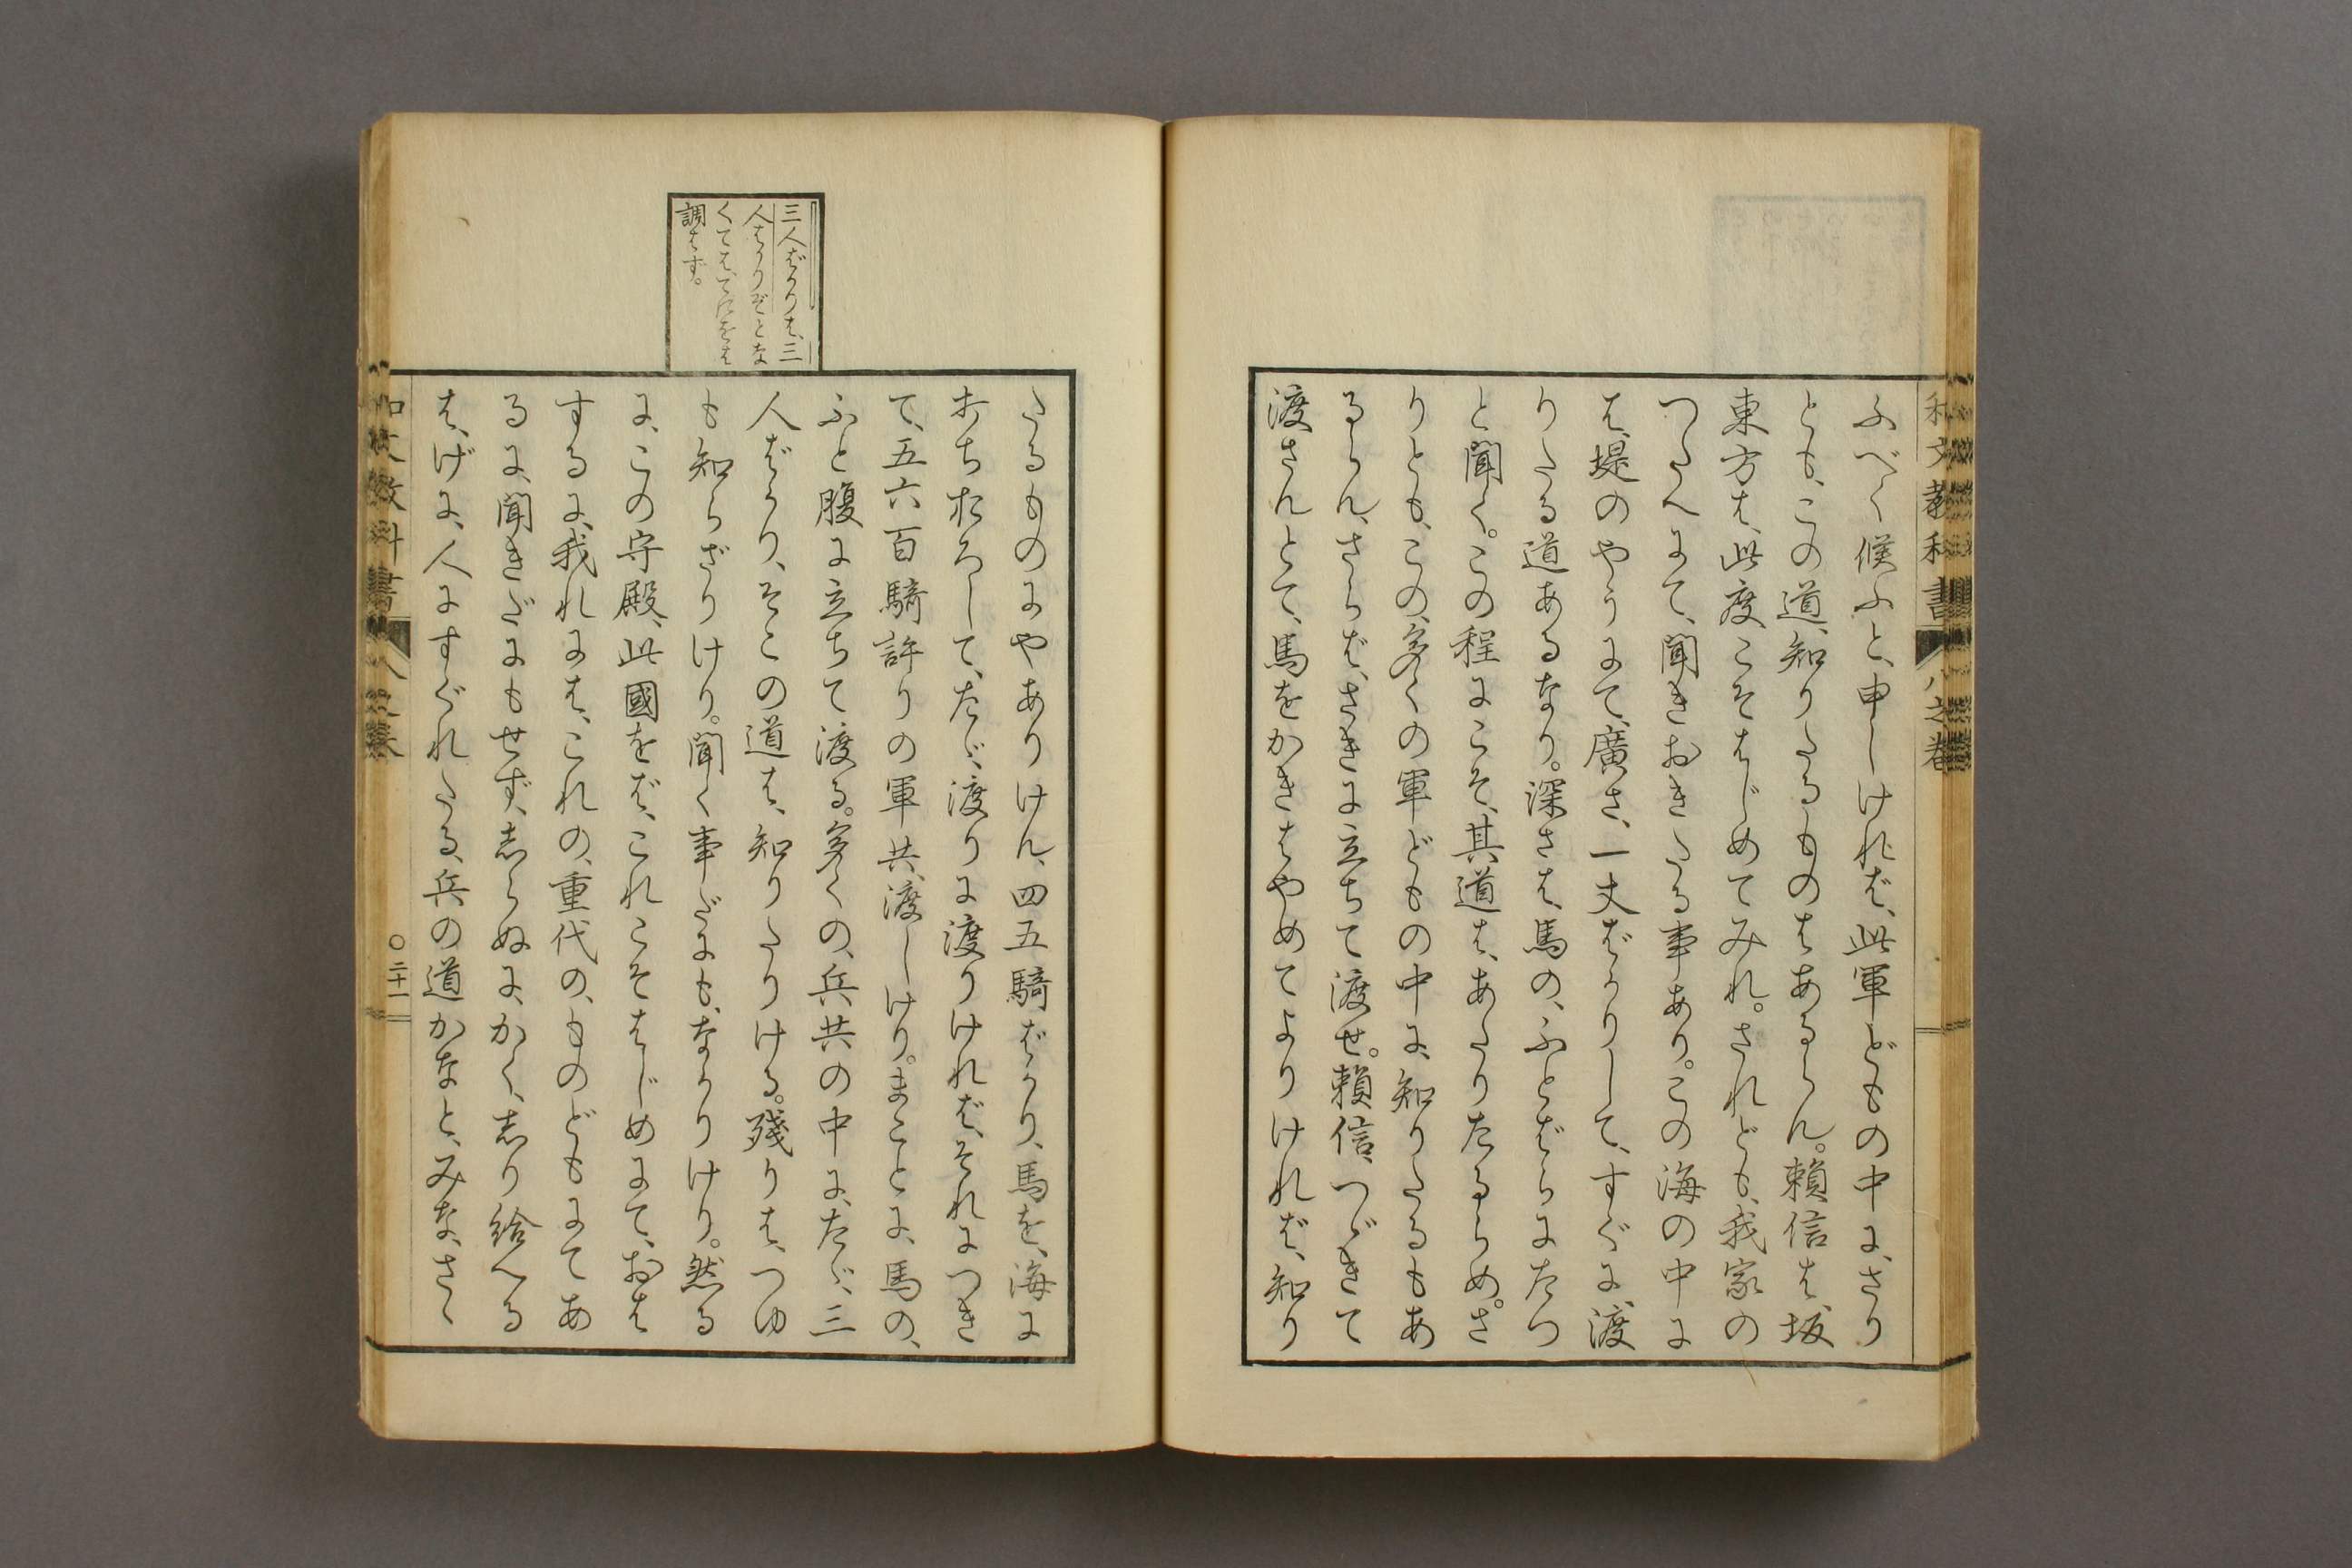 和文教科書 八之巻
ふべく候ふと、申しけれバ、此軍どもの中に、さり
とも、この道、知りたるものはあるらん。頼信は、坂
東方は、此度こそはじめてみれ。されども、我家の
つたへにて、聞きおきたる事あり。この海の中に
は、堤のやうにて、廣さ、一丈ばかりして、すぐに、渡
りたる道あるなり。深さは、馬の、ふとばらにたつ
と聞く。この程にこそ、其道は、あたりたるらめ。さ
りとも、この、多くの軍どもの中に、知りたるもあ
るらん、さらば、さきに立ちて渡せ。頼信、つゞきて
渡さんとて、馬をかきはやめてよりければ、知り
たるものにやありけん、四五騎ばかり、馬を、海に
おちおろして、たゞ、渡りに渡りければ、それにつき
て、五六百騎許りの軍共、渡しけり。まことに、馬の、
ふと腹に立ちて渡る。多くの、兵共の中に、たゞ、三
人ばかり、そこの道は、知りたりける。殘りは、つゆ
も知らざりけり。聞く事だにも、なかりけり。然る
に、この守殿、此國をば、これこそはじめにて、おは
するに、我れには、これの、重代の、ものどもにてあ
るに、聞きだにもせず、志らぬに、かく、志り給へる
は、げに、人にすぐれたる、兵の道かなと、みな、さゝ
三人ばかりは、三
人はかりぞとな
くては、てにをは
調はず。
和文教科書 八之巻 ○二十一